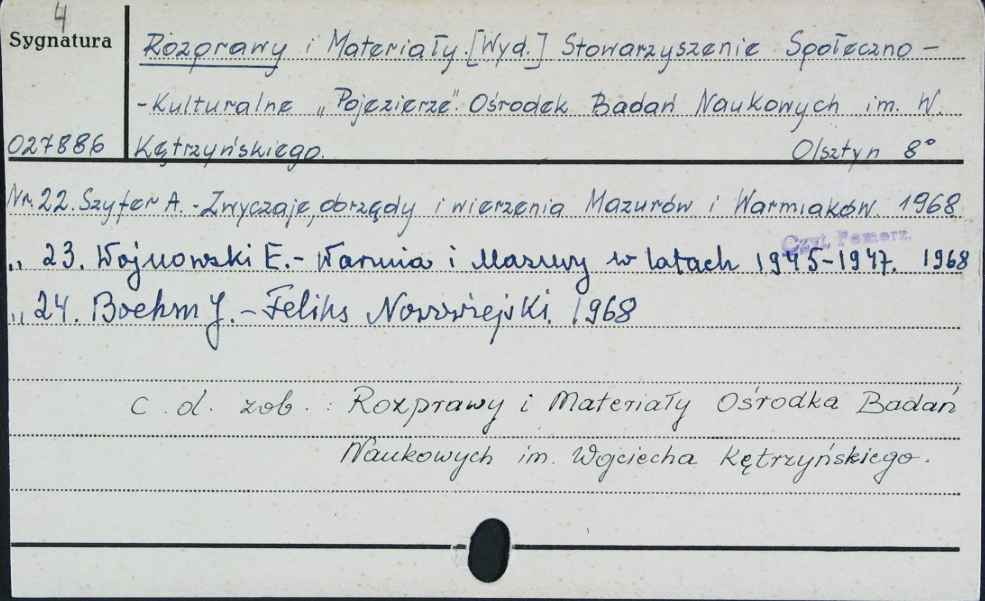 4
Sygnatura
Rozprawy i Materiały. [Wyd.] Stowarzyszenie Społeczno-
-Kulturalne „Pojezierze". Ośrodek Badań Naukowych im. W.
027886 Kętrzyńskiego. Olsztyn 8°
Nr. 22. Szyfer A. - Zwyczaje, obrzędy i wierzenia Mazurów i Warmiaków. 1968
Czyt. Pomorz.
„ 23. Wojnowski E. - Warmia i Mazury w latach 1945-1947. 1968
„ 24. Boehm J. - Feliks Nowowiejski. 1968
c. d. zob. : Rozprawy i Materiały Ośrodka Badań
Naukowych im. Wojciecha Kętrzyńskiego.